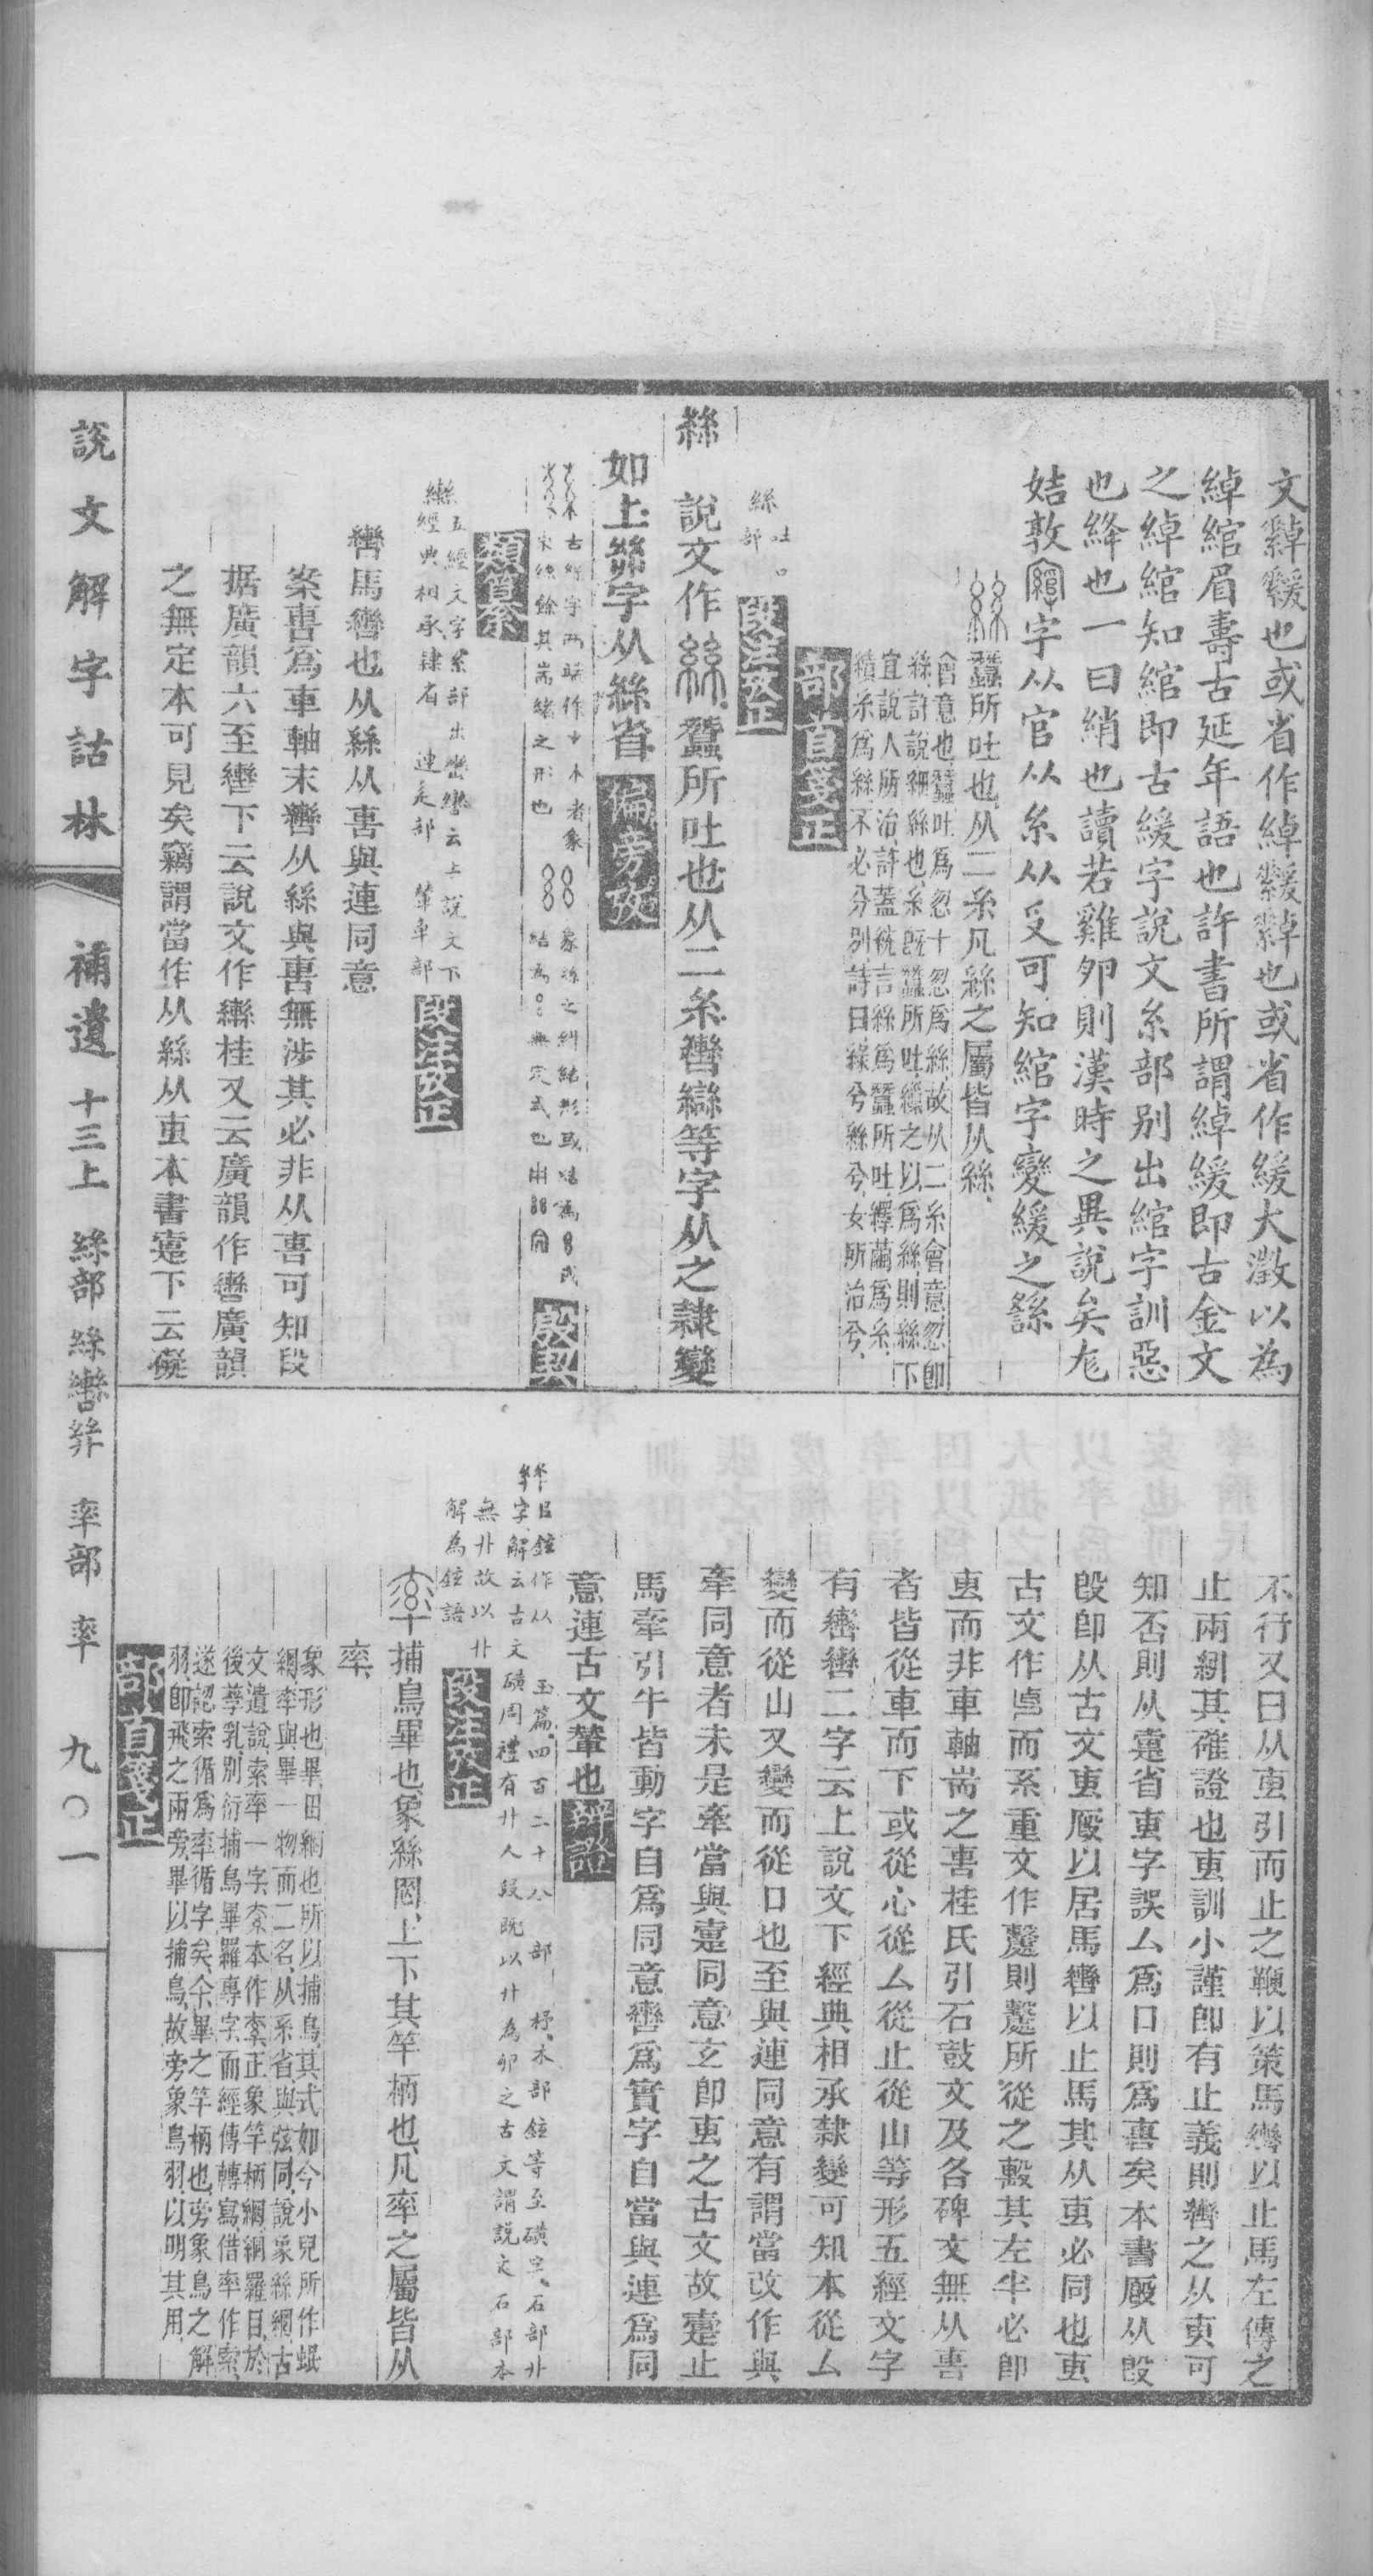 文繛緩也或省作綽緩繛也或省作緩大澂以為
綽綰眉壽古延年語也許書所謂綽緩即古金文
之綽綰知綰即古緩字說文糸部別出綰字訓惡
也絳也一曰綃也讀若雞夘則漢時之異說矣尨
姞敦字从官从糸从爫可知綰字變緩之繇
蠶所吐也从二糸凡絲之屬皆从絲
會意也蠶吐爲忽十忽爲絲故从二糸會意忽即
絲許說細絲也糸既蠶所吐繅之以爲絲則絲下
宜說人所治許蓋統言絲爲蠶所吐繹繭爲糸
積糸爲絲不必分別詩曰綠兮絲兮女所治兮
部首箋正
絲 吐
部
段注攷正
絲 說文作絲蠶所吐也从二糸轡䜌等字从之隸變
如上茲字从絲省
偏旁攷
古絲字兩端作者象象絲之糾結形或結爲或
束絲餘其耑緒之形也結爲無定式也
殷契類纂
䜌五經文字糸部出轡䜌云上說文下
䜌經典相承隸省 連辵部 輦車部
段注攷正
轡馬轡也从絲从軎與連同意
案軎爲車軸末轡从絲與軎無涉其必非从軎可知段
据廣韻六至轡下云說文作䜌桂又云廣韻作轡廣韻
之無定本可見矣竊謂當作从絲从叀本書疐下云礙
不行又曰从叀引而止之鞭以策馬轡以止馬左傳之
止兩靷其確證也叀訓小謹即有止義則轡之从叀可
知否則从疐省叀字誤厶爲口則爲軎矣本書廄从㲃
㲃即从古文叀廄以居馬轡以止馬其从叀必同也叀
古文作而系重文作䥣則所從之毄其左半必即
叀而非車軸耑之軎桂氏引石鼓文及各碑文無从軎
者皆從車而下或從心從厶從止從山等形五經文字
有轡轡二字云上說文下經典相承隸變可知本從厶
變而從山又變而從口也至與連同意有謂當改作與
牽同意者未是牽當與疐同意玄即叀之古文故疐止
馬牽引牛皆動字自爲同意轡爲實字自當與連爲同
意連古文輦也
辨證
作从 玉篇四百二十八部 杼木部鈺等至磺字石部卝
字解云古文磺周禮有卝人段既以卝為卵之古文謂說文石部本
無卝故以卝
解為鉉語
段注攷正
率捕鳥畢也象絲罔上下其竿柄也凡率之屬皆从
率
象形也畢田網也所以捕鳥其式如今小兒所作蜢
網率與畢一物而二名从糸省與弦同說象絲網古
文遺說索率一字本作索正象竿柄網網羅目於
後孳乳別衍捕鳥畢羅專字而經傳轉寫借率作索
遂認索循爲率循字矣仐畢之竿柄也旁象鳥之解
羽即飛之兩旁畢以捕鳥故旁象鳥羽以明其用
部首箋正
說文解字詁林 補遺 十三上 絲部 絲轡 率部 率 九〇一